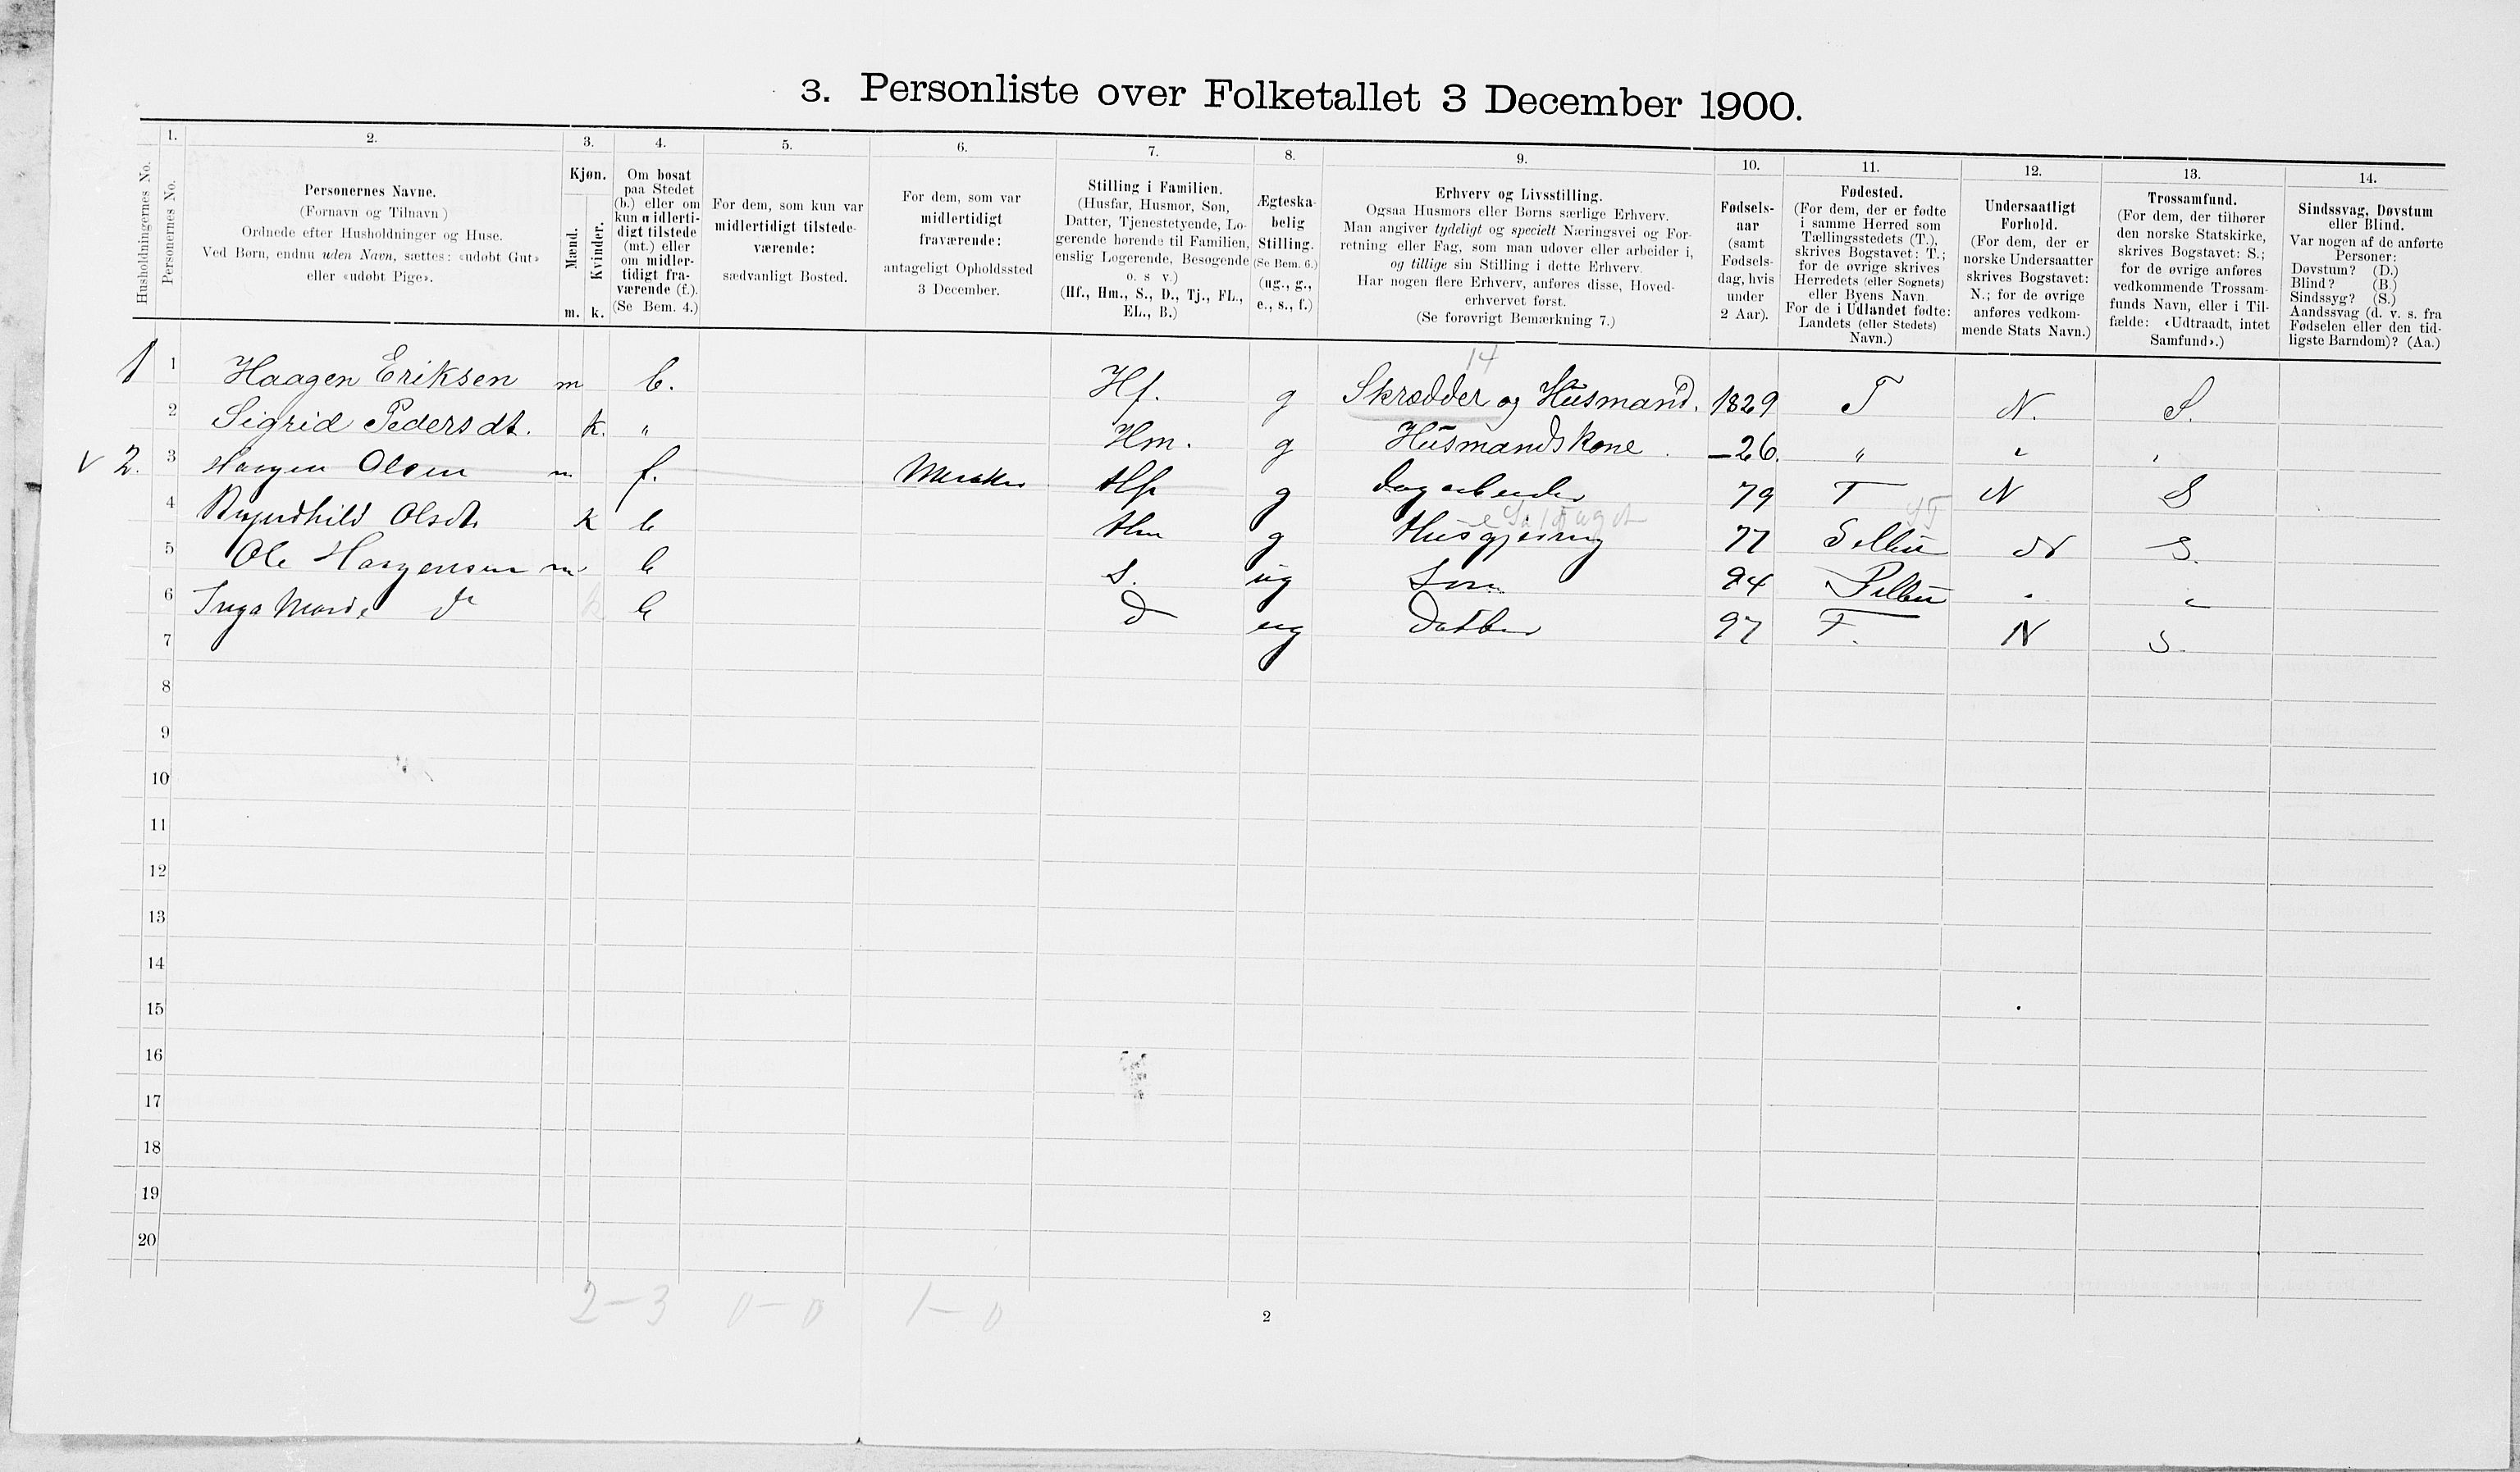 3. Personliste over Folketallet 3 December 1900.
1. 2. 3. 4. 5. 6. 7. 8. 9. 10. 11. 12. 13. 14.
Husholdningernes No.
Personernes No.
Personernes Navne.
(Fornavn og Tilnavn)
Ordnede efter Husholdninger og Huse.
Ved Børn, endnu uden Navn, sættes: «udøbt Gut»
eller «udøbt Pige».
Kjøn.
Mænd.
Kvinder.
m. k.
Om bosat
paa Stedet
(b.) eller om
kun midlerti-
digt tilstede
(mt.) eller
om midler-
tidigt fra-
værende (f.).
(Se Bem. 4.)
For dem, som kun var
midlertidigt tilstede-
værende:
sædvanligt Bosted.
For dem, som var
midlertidigt
fraværende:
antageligt Opholdssted
3 December.
Stilling i Familien.
(Husfar, Husmor, Søn,
Datter, Tjenestetyende, Lo-
gerende hørende til Familien,
enslig Logerende, Besøgende
o. s v.)
(Hf., Hm., S., D., Tj., FL.,
EL., B.)
Ægteska-
belig
Stilling.
(Se Bem. 6.)
(ug., g.,
e., s., f.)
Erhverv og Livsstilling.
Ogsaa Husmors eller Børns særlige Erhverv.
Man angiver tydeligt og specielt Næringsvei og For-
retning eller Fag, som man udøver eller arbeider i,
og tillige sin Stilling i dette Erhverv.
Har nogen flere Erhverv, anføres disse, Hoved-
erhvervet først.
(Se forøvrigt Bemærkning 7.)
Fødsels-
aar
(samt
Fødsels-
dag, hvis
under
2 Aar).
Fødested.
(For dem, der er fødte
i samme Herred som
Tællingsstedets (T.),
skrives Bogstavet: T.;
for de øvrige skrives
Herredets (eller Sognets)
eller Byens Navn.
For de i Udlandet fødte:
Landets (eller Stedets)
Navn.)
Undersaatligt
Forhold.
(For dem, der er
norske Undersaatter
skrives Bogstavet:
N.; for de øvrige
anføres vedkom-
mende Stats Navn.)
Trossamfund.
(For dem, der tilhører
den norske Statskirke,
skrives Bogstavet: S.;
for de øvrige anføres
vedkommende Trossam-
funds Navn, eller i Til-
fælde: «Udtraadt, intet
Samfund».)
Sindssvag, Døvstum
eller Blind.
Var nogen af de anførte
Personer:
Døvstum? (D.)
Blind? (B.)
Sindssyg? (S.)
Aandssvag (d. v. s. fra
Fødselen eller den tid-
ligste Barndom)? (Aa.)
14
1 1 Haagen Eriksen m b. Hf. g Skrædder og Husmand. 1829 T N. S.
2 Sigrid Pedersdt. k. " Hm. g Husmandskone. -26. " " "
v 2. 3 Haagen Olsen m f. Meraker Hf g Dagarbeider 79 T N S
4 Olsdt k b Hm g Husgjerning 77 Selbu N S.
5 Ole Haagensen m b S. ug Søn 94 Selbu " "
6 Inga Marie do k b D ug Datter 97 T. N S.
7
8
9
10
11
12
13
14
15
16
17
18
19
20
2-3 0-0 1-0
2